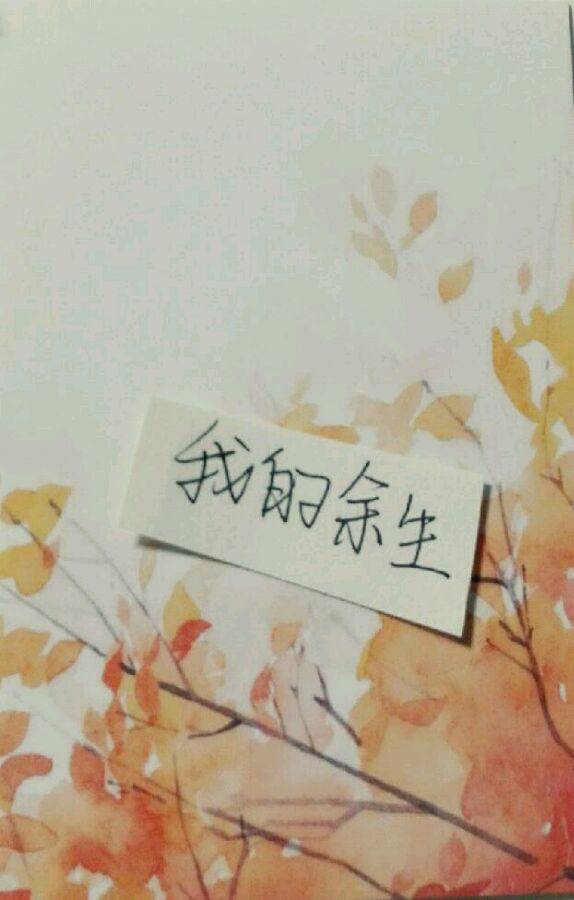 我的余生